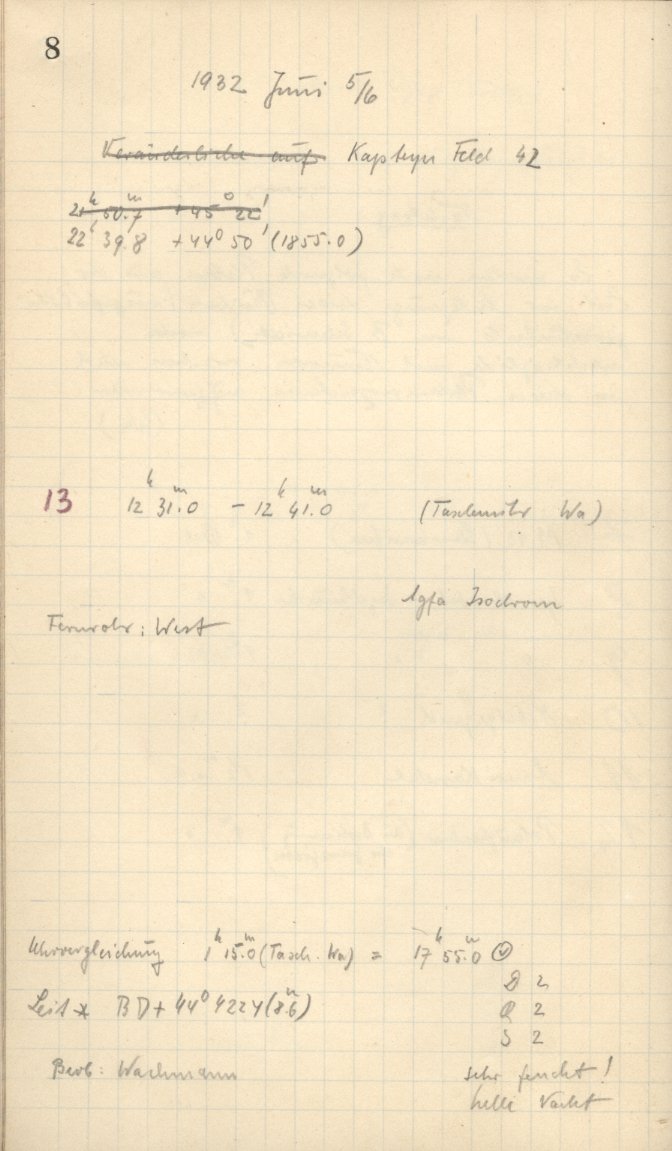 8
1932 Juni 5/6
Veränderliche auf Kapteyn Feld 42
21h 50.m7 +45° 22'
22h 39.8 +44° 50' (1855.0)
13 12h 31.m0 – 12h 41.m0 (Taschenuhr Wa)
Agfa Isochrom
Fernrohr: West
Uhrvergleichung 1h 15.m0 (Tasch. Wa) = 17h 55.m0
D 2
Leit * BD + 44° 4224 (8.m6)
Q 2
S 2
Beob: Wachmann sehr feucht!
helle Nacht